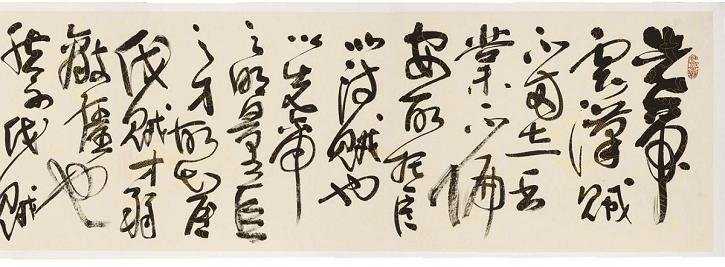 先帝
慮漢賊
不兩立王
業不偏
安故託臣
以討賊也
以先帝
之明量臣
之才故知臣
伐賊才弱
敵彊也
然不伐賊